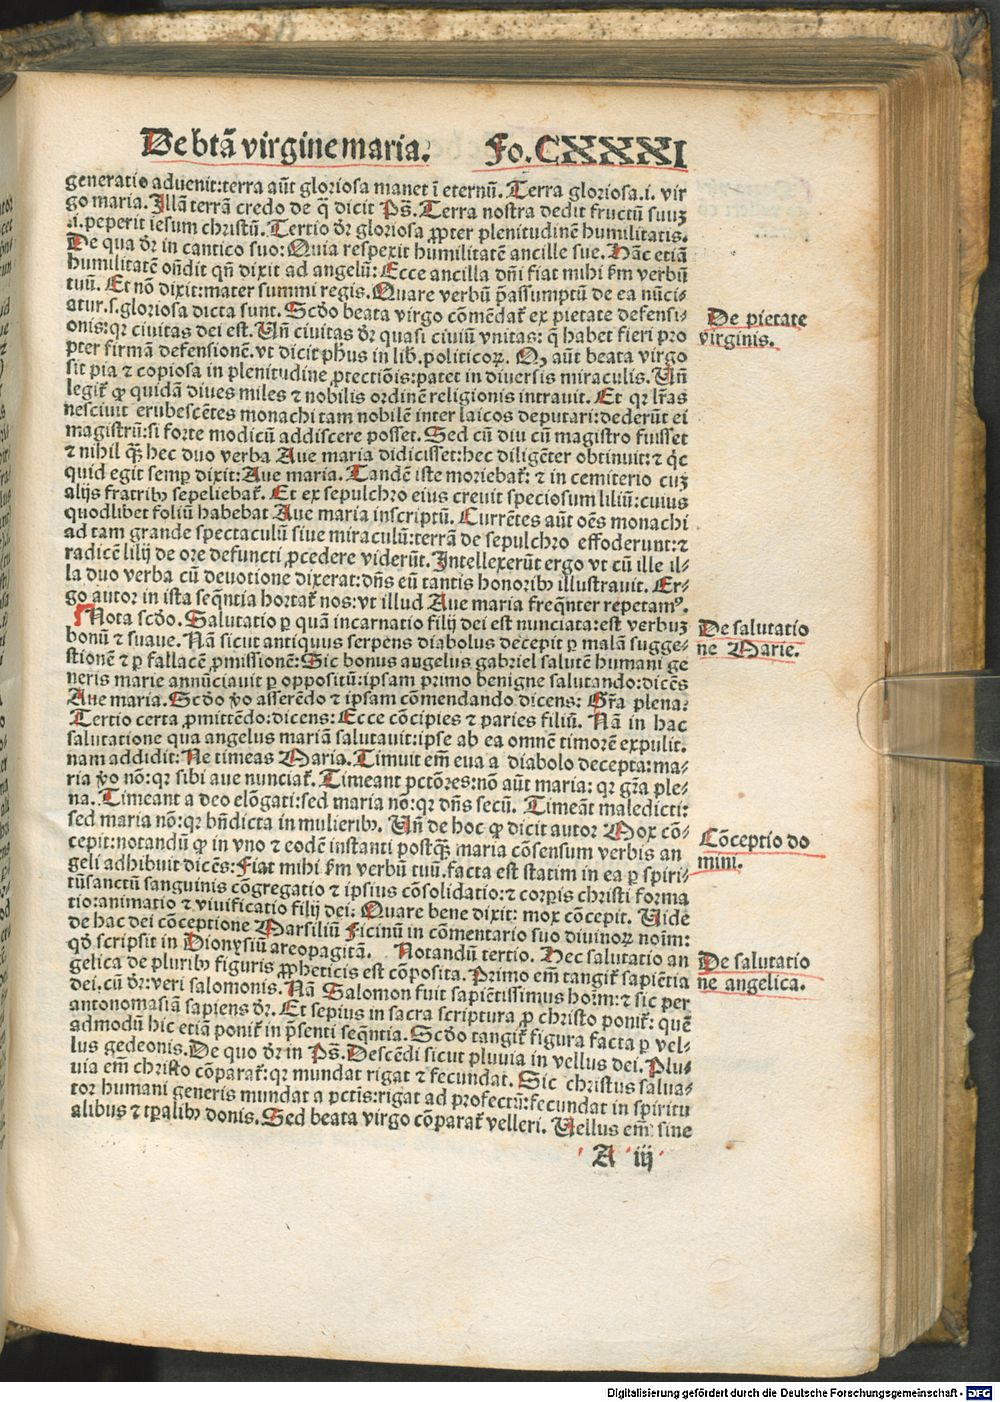 De btã virgine maria. Fo. CXXXI
generatio aduenit: terra aũt gloriosa manet ĩ eternũ. Terra gloriosa .i. vir
go maria. Illã terrã credo de q̃ dicit Ps̃. Terra nostra dedit fructũ suuꝫ
.i. peperit iesum christũ. Tertio dr̃ gloriosa ꝓpter plenitudinẽ humilitatis.
De qua dr̃ in cantico suo: Quia respexit humilitatẽ ancille sue. Hãc etiã
humilitatẽ oñdit qñ dixit ad angelũ: Ecce ancilla dñi fiat mihi ẜm verbũ
tuũ. Et nõ dixit: mater summi regis. Quare verbũ p̃assumptũ de ea nũci⸗
atur .s. gloriosa dicta sunt. Scd̃o beata virgo cõmẽdat᷑ ex pietate defensi⸗
onis: qꝛ ciuitas dei est. Vñ ciuitas dr̃ quasi ciuiũ vnitas: q̃ habet fieri pro
pter firmã defensionẽ. vt dicit ph̃us in lib. politicoꝝ. Qꝫ aũt beata virgo
sit pia ⁊ copiosa in plenitudine ꝓtectiõis: patet in diuersis miraculis. Vñ
legit᷑ ꝙ quidã diues miles ⁊ nobilis ordinẽ religionis intrauit. Et qꝛ lr̃as
nesciuit erubescẽtes monachi tam nobilẽ inter laicos deputari: dederũt ei
magistrũ: si forte modicũ addiscere posset. Sed cũ diu cũ magistro fuisset
⁊ nihil qꝫ̃ hec duo verba Aue maria didicisset: hec diligẽter obtinuit: ⁊ qͥc
quid egit semꝑ dixit: Aue maria. Tandẽ iste moriebat᷑: ⁊ in cemiterio cuꝫ
alijs fratribꝰ sepeliebat᷑. Et ex sepulchro eius creuit speciosum liliũ: cuius
quodlibet foliũ habebat Aue maria inscriptũ. Currẽtes aũt oẽs monachi
ad tam grande spectaculũ siue miraculũ: terrã de sepulchro effoderunt: ⁊
radicẽ lilij de ore defuncti ꝓcedere viderũt. Intellexerũt ergo vt cũ ille il⸗
la duo verba cũ deuotione dixerat: dñs eũ tantis honoribꝰ illustrauit. Er⸗
go autor in ista seq̃ntia hortat᷑ nos: vt illud Aue maria freq̃nter repetamꝰ.
Nota scd̃o. Salutatio ꝑ quã incarnatio filij dei est nunciata: est verbuꝫ
bonũ ⁊ suaue. Nã sicut antiquus serpens diabolus decepit ꝑ malã sugge⸗
stionẽ ⁊ ꝑ fallacẽ ꝓmissionẽ: Sic bonus angelus gabriel salutẽ humani ge
neris marie annũciauit ꝑ oppositũ: ipsam primo benigne salutando: dicẽs
Aue maria. Scd̃o ṽo asserẽdo ⁊ ipsam cõmendando dicens: Gr̃a plena:
Tertio certa ꝓmittẽdo: dicens: Ecce cõcipies ⁊ paries filiũ. Nã in hac
salutatione qua angelus mariã salutauit: ipse ab ea omnẽ timorẽ expulit.
nam addidit: Ne timeas Maria. Timuit em̃ eua a diabolo decepta: ma⸗
ria ṽo nõ: qꝛ sibi aue nunciat᷑. Timeant pctõres: nõ aũt maria: qꝛ gr̃a ple⸗
na. Timeant a deo elõgati: sed maria nõ: qꝛ dñs secũ. Timeãt maledicti:
sed maria nõ: qꝛ bñdicta in mulieribꝰ. Vñ de hoc ꝙ dicit autor Mox cõ⸗
cepit: notandũ ꝙ in vno ⁊ eodẽ instanti postqꝫ̃ maria cõsensum verbis an
geli adhibuit dicẽs: Fiat mihi ẜm verbũ tuũ. facta est statim in ea ꝑ spiri⸗
tũsanctũ sanguinis cõgregatio ⁊ ipsius cõsolidatio: ⁊ corpĩs christi forma
tio: animatio ⁊ viuificatio filij dei: Quare bene dixit: mox cõcepit. Vide
de hac dei cõceptione Marsiliũ Ficinũ in cõmentario suo diuinoꝝ noĩm:
qd̃ scripsit in Dionysiũ areopagitã. Notandũ tertio. Hec salutatio an
gelica de pluribꝰ figuris ꝓpheticis est cõposita. Primo em̃ tangit᷑ sapiẽtia
dei. cũ dr̃: veri salomonis. Nã Salomon fuit sapiẽtissimus hoĩm: ⁊ sic per
antonomasiã sapiens dr̃. Et sepius in sacra scriptura ꝓ christo ponit᷑: quẽ
admodũ hic etiã ponit᷑ in p̃senti seq̃ntia. Scd̃o tangit᷑ figura facta ꝑ vel⸗
lus gedeonis. De quo dr̃ in Ps̃. Descẽdi sicut pluuia in vellus dei. Plu⸗
uia em̃ christo cõparat᷑: qꝛ mundat rigat ⁊ fecundat. Sic christus salua⸗
tor humani generis mundat a pctis: rigat ad profectũ: fecundat in spiritu
alibus ⁊ tꝑalibꝰ donis. Sed beata virgo cõparat᷑ velleri. Vellus em̃ sine
A iij
De pietate
virginis.
De salutatio
ne Marie.
Cõceptio do
mini.
De salutatio
ne angelica.
Digitalisierung gefördert durch die Deutsche Forschungsgemeinschaft - DFG